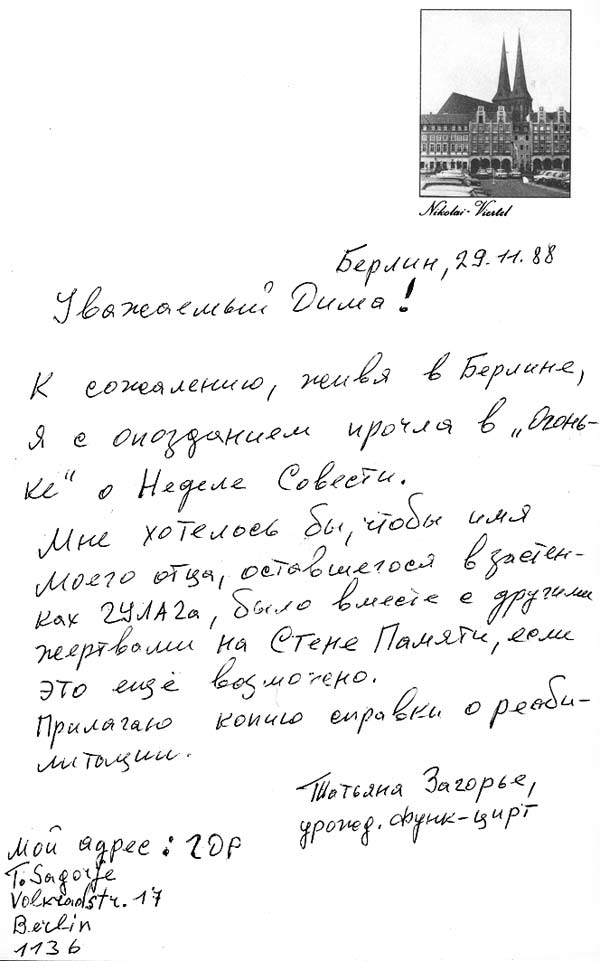 Nikolai-Viertel
Берлин, 29.11.88
Уважаемый Дима!
К сожалению, живя в Берлине,
я с опозданием прочла в „Огонь-
ке“ о Неделе Совести.
Мне хотелось бы, чтобы имя
моего отца, оставшегося в застен-
ках ГУЛАГа, было вместе с другими
жертвами на Стене Памяти, если
это ещё возможно.
Прилагаю копию справки о реаби-
литации.
Татьяна Загорье,
урожд. Функ-Цирт
Мой адрес: ГДР
T. Sagorje
Volkradstr. 17
Berlin
1136